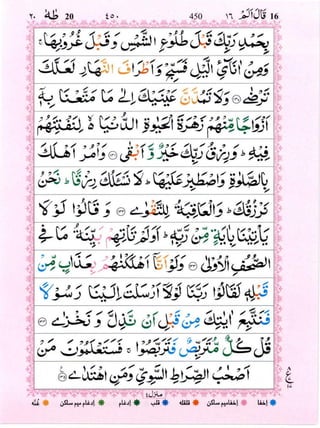 ٢٠ طٰهٰ 20 ٤٥٠ 450 قَالَ اَلَمْ ١٦ 16
بِحَمْدِ رَبِّكَ قَبْلَ طُلُوْعِ الشَّمْسِ وَ قَبْلَ غُرُوْبِهَا ۚ
وَمِنْ اٰنَآئِ الَّيْلِ فَسَبِّحْ وَاَطْرَافَ النَّهَارِ لَعَلَّكَ
تَرْضٰى ﴿۱۳۰﴾ وَلَا تَمُدَّنَّ عَيْنَيْكَ اِلٰى مَا مَتَّعْنَا بِهٖۤ
اَزْوَاجًا مِّنْهُمْ زَهْرَةَ الْحَيٰوةِ الدُّنْيَا ۙ لِنَفْتِنَهُمْ
فِيْهِ ؕ وَرِزْقُ رَبِّكَ خَيْرٌ وَّ اَبْقٰى ﴿۱۳۱﴾ وَاْمُرْ اَهْلَكَ
بِالصَّلٰوةِ وَاصْطَبِرْ عَلَيْهَا ؕ لَا نَسْـَٔلُكَ رِزْقًا ؕ نَحْنُ
نَرْزُقُكَ ؕ وَالْعَاقِبَةُ لِلتَّقْوٰى ﴿۱۳۲﴾ وَ قَالُوْا لَوْ لَا
يَاْتِيْنَا بِاٰيَةٍ مِّنْ رَّبِّهٖ ؕ اَوَلَمْ تَاْتِهِمْ بَيِّنَةُ مَا فِى
الصُّحُفِ الْاُوْلٰى ﴿۱۳۳﴾ وَلَوْ اَنَّاۤ اَهْلَكْنٰهُمْ بِعَذَابٍ مِّنْ
قَبْلِهٖ لَقَالُوْا رَبَّنَا لَوْلَاۤ اَرْسَلْتَ اِلَيْنَا رَسُوْلًا
فَنَتَّبِعَ اٰيٰتِكَ مِنْ قَبْلِ اَنْ نَّذِلَّ وَ نَخْزٰى ﴿۱۳۴﴾
قُلْ كُلٌّ مُّتَرَبِّصٌ فَتَرَبَّصُوْا ۚ فَسَتَعْلَمُوْنَ مَنْ
اَصْحٰبُ الصِّرَاطِ السَّوِىِّ وَمَنِ اهْتَدٰى ﴿۱۳۵﴾
منزل ٤
اخفا اخفا میم ساکن قلقله قلب ادغام ادغام میم ساکن غنّه